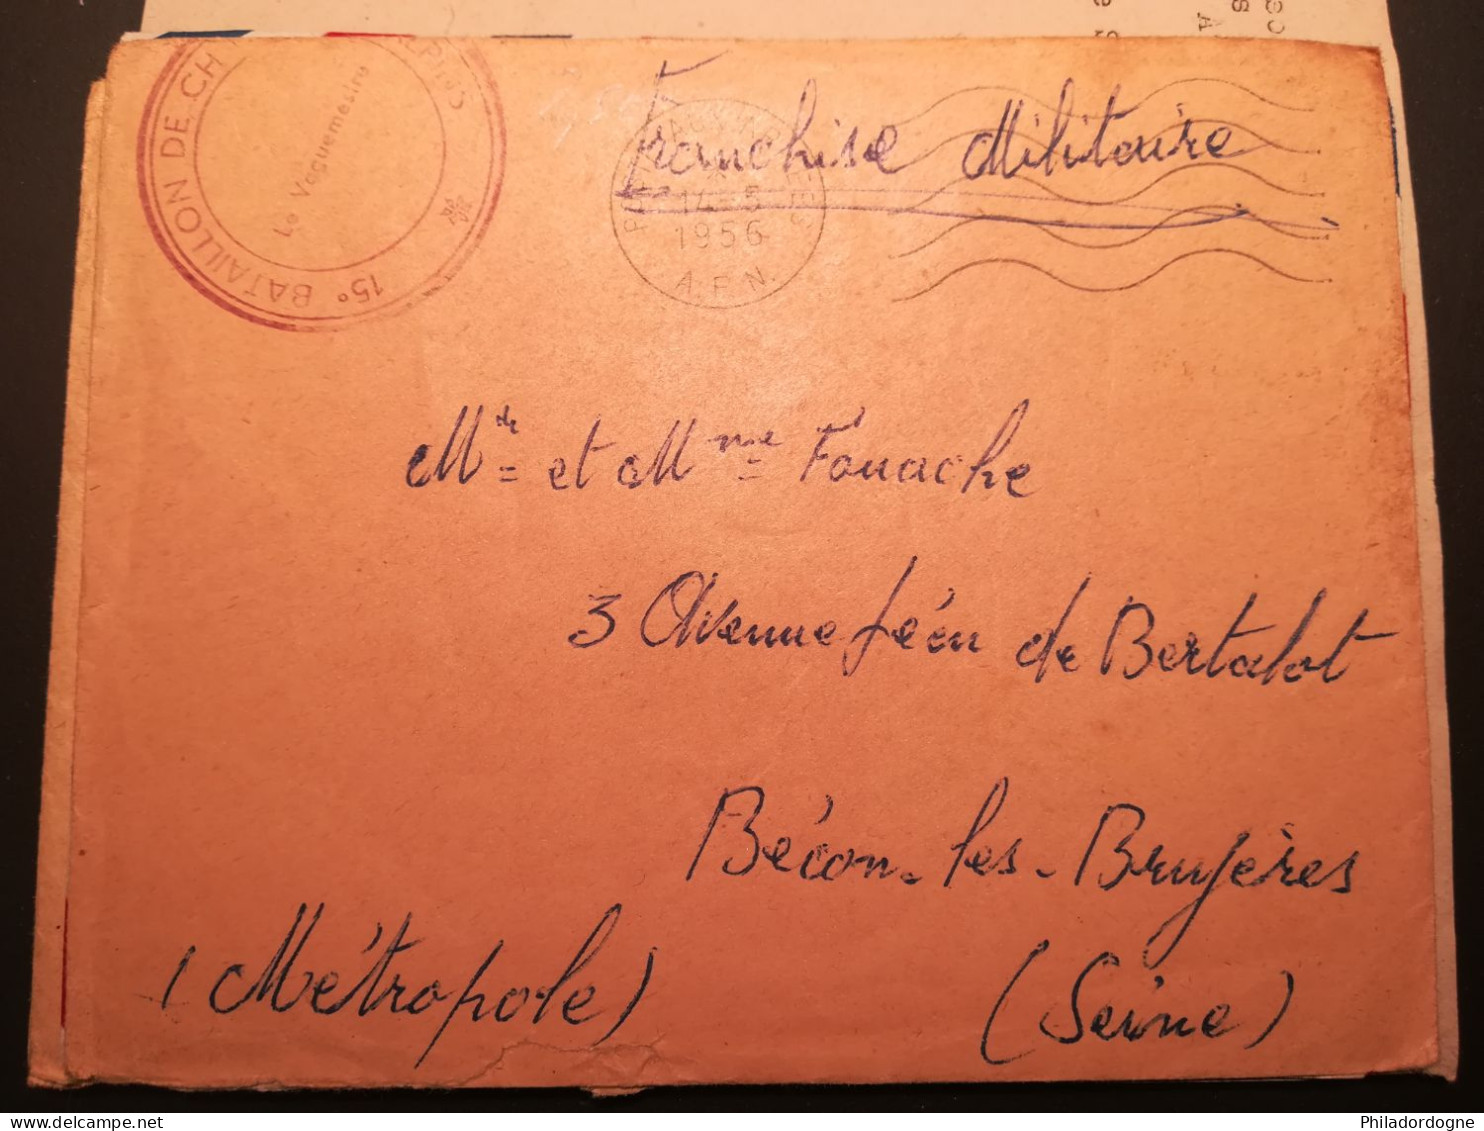 15° BATAILLON DE CH
Le Vaguemestre
Franchise Militaire
14-5
1956
A.F.N.
Mr et Mme Fouache
3 Avenue féén de Bertalot
Bécon-les-Bruyères
(Métropole)
(Seine)
delcampe.net
Philadordogne